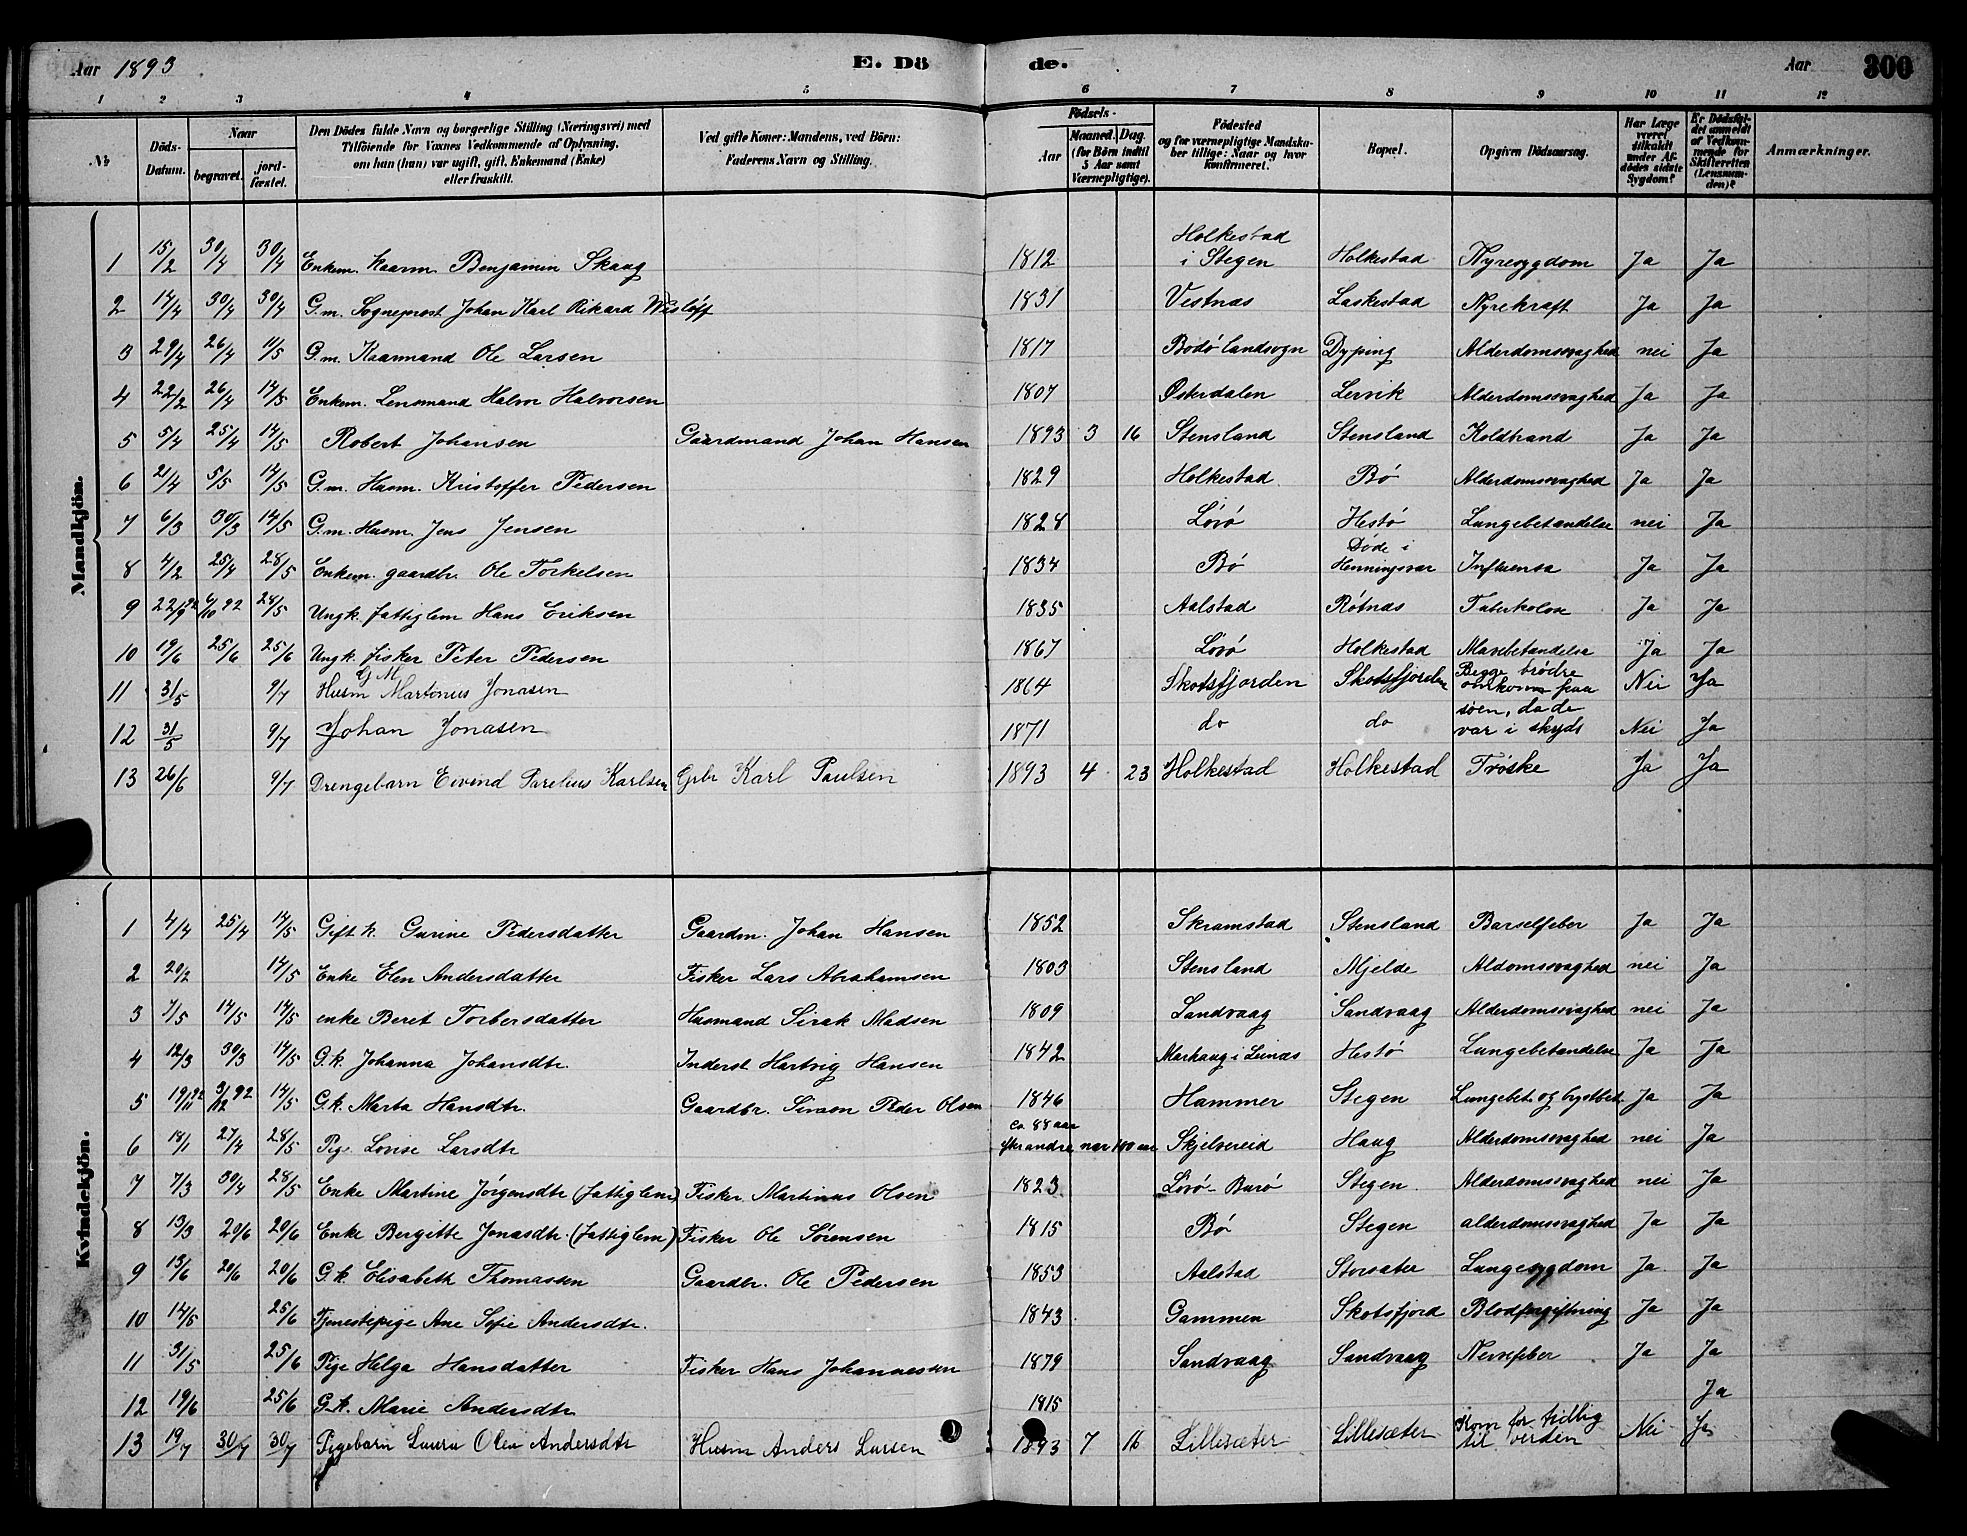 Aar 1893 E. Dö de. Aar 300
1 2 3 4 5 6 7 8 9 10 11 12
No Döds-Datum. Naar begravet. jord-fæstet. Den Dödes fulde Navn og borgerlige Stilling (Næringsvei) med Tilföiende for Voxnes Vedkommende af Oplysning, om han (hun) var ugift, gift, Enkemand (Enke) eller fraskilt. Ved gifte Koner: Mandens, ved Börn: Faderens Navn og Stilling. Födsels- Aar Maaned. Dag. (for Börn indtil 5 Aar samt Værnepligtige). Födested og for værnepligtige Mandskaber tillige: Naar og hvor konfirmeret. Bopæl. Opgiven Dödsaarsag. Har Læge været tilkaldt under Afdödes sidste Sygdom? Er Dödsfaldet anmeldt af Vedkommende for Skifteretten (Lensmanden)? Anmærkninger.
Mandkjön.
1 15/2 30/4 30/4 Enkem. Kaarm. Benjamin Skaug 1812 Holkestad i Stegen Holkestad Nyresygdom Ja Ja
2 14/4 30/4 30/4 G.m. Sogneprest Johan Karl Rikard Wisløff 1831 Vestnæs Laskestad Nyrekræft Ja Ja
3 29/4 26/4 11/5 G.m. Kaarmand Ole Larsen 1817 Bodø landsogn Dyping Alderdomssvaghed nei Ja
4 22/2 26/4 14/5 Enkem. Lensmand Halvor Halvorsen 1807 Østerdalen Leivik Alderdomssvaghed Ja Ja
5 5/4 25/4 14/5 Robert Johansen Gaardmand Johan Hansen 1893 3 16 Stensland Stensland Koldbrand Ja Ja
6 21/4 5/5 14/5 G.m. Husm. Kristoffer Pedersen 1829 Holkestad Bø Alderdomssvaghed Ja Ja
7 6/3 30/3 14/5 G.m. Husm. Jens Jensen 1828 Løvø Hestø Lungebetændelse nei Ja
8 4/2 25/4 28/5 Enkem. gaardbr. Ole Torkelsen 1834 Bø Døde i Henningsvær Influensa Ja Ja
9 22/9 92 6/10 92 28/5 Ungk. fattiglem Hans Eriksen 1835 Aalstad Røtnæs Tuberkolose Ja Ja
10 19/6 25/6 25/6 Ungk. fisker Peter Pedersen 1867 Løvø Holkestad Mavebetændelse Ja Ja
11 31/5 9/7 G M Husm Martonius Jonasen 1864 Skotsfjorden Skotsfjorden Begge brødre omkom paa Nei Ja
12 31/5 9/7 Johan Jonasen 1871 do do søen, da de var i skyds Nei Ja
13 26/6 9/7 Drengebarn Eivind Parelius Karlsen Gbr Karl Paulsen 1893 4 23 Holkestad Holkestad Trøske Ja Ja
Kvindekjön.
1 4/4 25/4 14/5 Gift k. Gurine Pedersdatter Gaardm. Johan Hansen 1852 Skramstad Stensland Barselfeber Ja Ja
2 20/2 14/5 Enke Elen Andersdatter Fisker Lars Abrahamsen 1803 Stensland Mjelde Aldomssvaghed nei Ja
3 1/5 14/5 14/5 enke Beret Torbersdatter Husmand Sirak Madsen 1809 Sandvaag Sandvaag Alderdomssvaghed nei Ja
4 12/3 30/3 14/5 G.k. Johanna Johansdtr. Inderst Hartvig Hansen 1842 Marhaug i Leines Hestø Lungebetændelse Ja Ja
5 19/11 92 3/12 92 14/5 G.k. Marta Hansdtr. Gaardbr. Simon Peder Olsen 1846 Hammer Stegen Lungebet. og brystbet Ja Ja
6 18/1 27/4 28/5 Pige Lovise Larsdtr ca. 88 aar efter andre nær 100 aar Skjelvereid Haug Alderdomssvaghed nei Ja
7 7/3 30/4 28/5 Enke Martine Jørgensdtr (fattiglem) Fisker Martinus Olsen 1823 Løvø-Burø Stegen Alderdomssvaghed nei Ja
8 13/3 20/6 20/6 Enke Bergitte Jonasdtr. (fattiglem) Fisker Ole Sørensen 1815 Bø Stegen alderdomssvaghed Ja Ja
9 13/6 20/6 20/6 G.k. Elisabeth Thomassen Gaardbr. Ole Pedersen 1853 Aalstad Storsæter Lungesygdom Ja Ja
10 14/5 25/6 Tjenestepige Ane Sofie Andersdtr. 1843 Gammen Skotsfjord Blodforgiftning Ja Ja
11 31/5 25/6 Pige Helga Hansdatter Fisker Hans Johannessen 1879 Sandvaag Sandvaag Nervefeber Ja Ja
12 19/6 25/6 G.k. Marie Andersdtr 1815 Ja
13 19/7 30/7 30/7 Pigebarn Laura Olea Andersdtr Husm Anders Larsen 1893 7 16 Lillesæter Lillesæter Kom for tidlig til verden Nei Ja